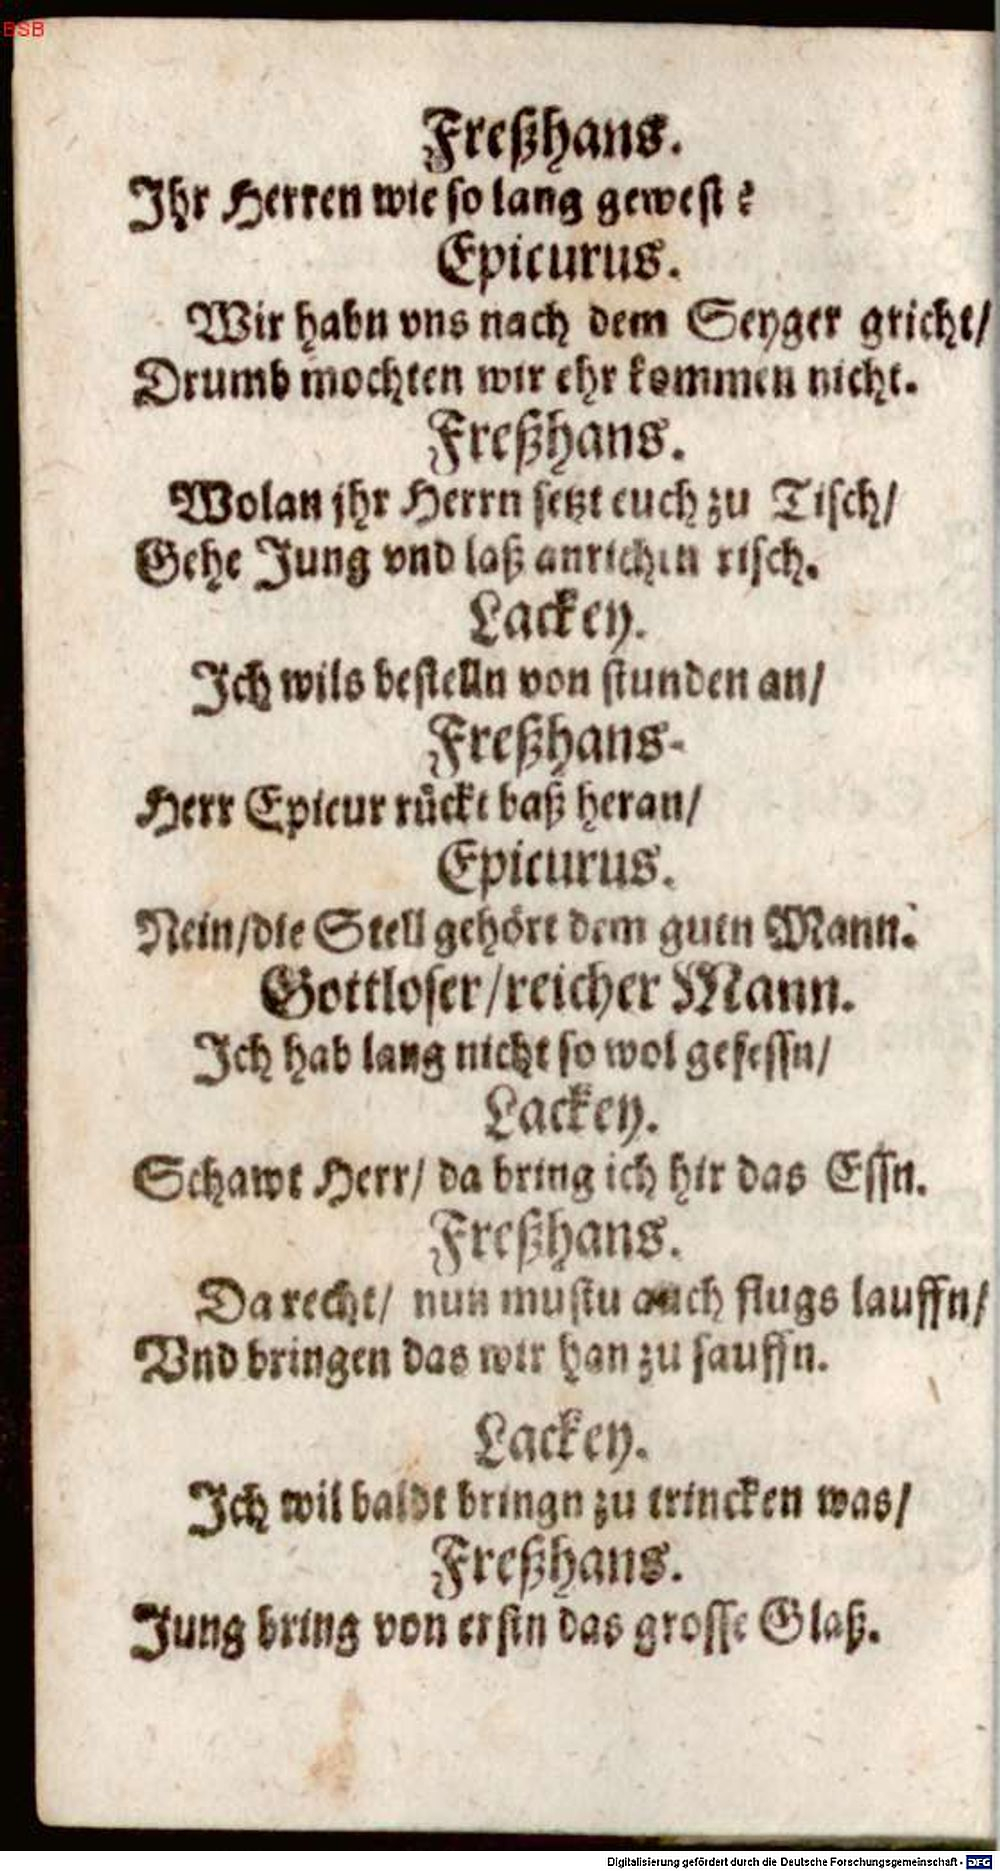 BSB
Freßhans.
Ihr Herren wie so lang gewest?
Epicurus.
Wir habn vns nach dem Seyger gricht/
Drumb mochten wir ehr kommen nicht.
Freßhans.
Wolan jhr Herrn setzt euch zu Tisch/
Gehe Jung vnd laß anrichtn risch.
Lackey.
Ich wils bestelln von stunden an/
Freßhans.
Herr Epicur rückt baß heran/
Epicurus.
Nein/die Stell gehört dem gutn Mann.
Gottloser/reicher Mann.
Ich hab lang nicht so wol gesessn/
Lackey.
Schawt Herr/ da bring ich hir das Essn.
Freßhans.
Da recht/ nun mustu auch flugs lauffn/
Vnd bringen das wir han zu sauffn.
Lackey.
Ich wil baldt bringn zu trincken was/
Freßhans.
Jung bring von erstn das grosse Glaß.
Digitalisierung gefördert durch die Deutsche Forschungsgemeinschaft - DFG